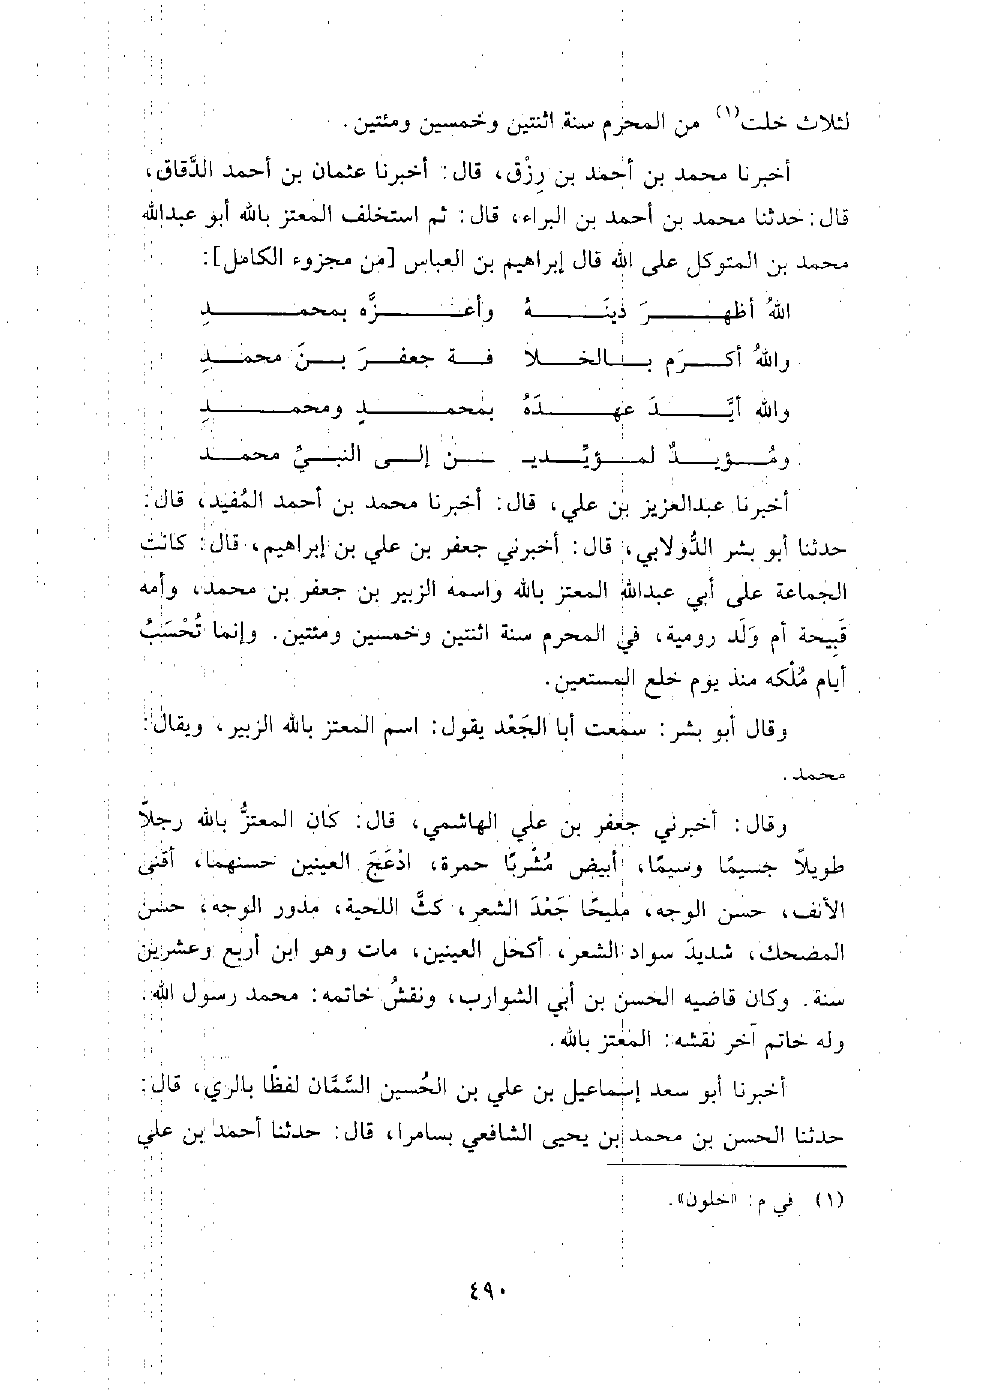 لثلاث خلت(١) من المحرم سنة اثنتين وخمسين ومئتين.
أخبرنا محمد بن أحمد بن رِزْق، قال: أخبرنا عثمان بن أحمد الدَّقاق،
قال: حدثنا محمد بن أحمد بن البراء، قال: ثم استخلف المعتز بالله أبو عبدالله
محمد بن المتوكل على الله قال إبراهيم بن العباس [من مجزوء الكامل]:
اللهُ أظهـرَ دْينَـهُ وأعـزَّه بمحمـدِ
واللهُ أكـرَم بـالخـلا فـة جعفـرَ بـنَ محمـدِ
والله أيَّـدَ عهـدَهُ بمحمـدٍ ومحمـدِ
ومُـؤيـدٌ لمـؤيِّـديـ ـن إلـى النبـيِّ محمـد
أخبرنا عبدالعزيز بن علي، قال: أخبرنا محمد بن أحمد المُفيد، قال:
حدثنا أبو بشر الدُّولابي، قال: أخبرني جعفر بن علي بن إبراهيم، قال: كانت
الجماعة على أبي عبدالله المعتز بالله واسمه الزبير بن جعفر بن محمد، وأمه
قَبِيحة أم وَلَد رومية، في المحرم سنة اثنتين وخمسين ومئتين. وإنما تُحْسَبُ
أيام مُلْكه منذ يوم خلع المستعين.
وقال أبو بشر: سمعت أبا الجَعْد يقول: اسم المعتز بالله الزبير، ويقال:
محمد.
وقال: أخبرني جعفر بن علي الهاشمي، قال: كان المعتزُّ بالله رجلاً
طويلاً جسيمًا وسيمًا، أبيض مُشْربًا حمرة، ادْعَجَ العينين حسنهما، أقنى
الأنف، حسن الوجه، مليحًا جَعْدَ الشعر، كثَّ اللحية، مدور الوجه، حسن
المضحك، شديدَ سواد الشعر، أكحل العينين، مات وهو ابن أربع وعشرين
سنة. وكان قاضيه الحسن بن أبي الشوارب، ونقشُ خاتمه: محمد رسول الله.
وله خاتم آخر نقشه: المعتز بالله.
أخبرنا أبو سعد إسماعيل بن علي بن الحُسين السَّمَّان لفظًا بالري، قال:
حدثنا الحسن بن محمد بن يحيى الشافعي بسامرا، قال: حدثنا أحمد بن علي
(١) في م: «خلون».
٤٩٠